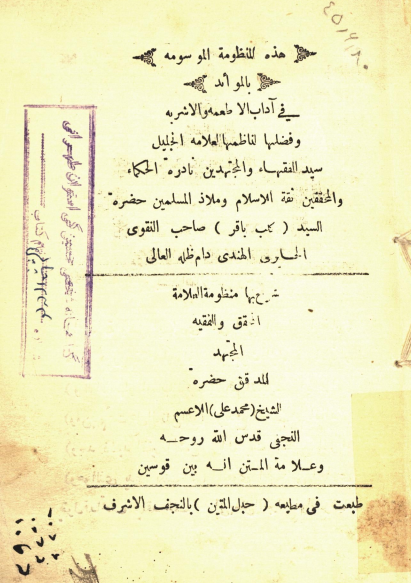 هذه المنظومة الموسومه
بالموائد
في آداب الاطعمه والاشربه
وفضلها لناظمها العلامه الجليل
سيد الفقهاء والمجتهدين نادرة الحكماء
والمحققين ثقة الاسلام وملاذ المسلمين حضرة
السيد ( كلب باقر ) صاحب النقوى
الحايرى الهندى دام ظله العالى
شرع بها منظومة العلامة
المحقق والفقيه
المجتهد
المدقق حضرة
الشيخ (محمد على) الاعسم
النجفى قدس الله روحه
وعلامة المتن انه بين قوسين
طبعت فى مطبعه ( حبل المتين ) بالنجف الاشرف